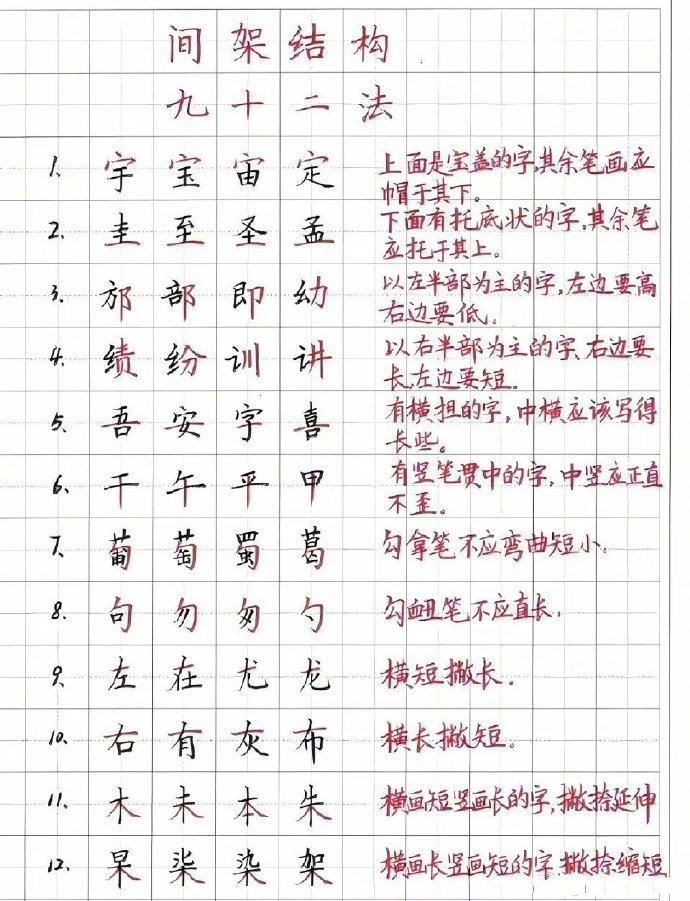 间架结构
九十二法
1. 宇 宝 宙 定 上面是宝盖的字,其余笔画应
帽于其下。
2. 圭 至 圣 孟 下面有托底状的字,其余笔
应托于其上。
3. 邡 部 即 幼 以左半部为主的字,左边要高
右边要低。
4. 绩 纷 训 讲 以右半部为主的字、右边要
长,左边要短.
5、 吾 安 字 喜 有横担的字,中横应该写得
长些。
6、 干 午 平 甲 有竖笔贯中的字,中竖应正直
不歪。
7、 葡 萄 蜀 葛 勾拿笔不应弯曲短小。
8. 句 勿 匆 勺 勾衄笔不应直长.
9、 左 在 尤 龙 横短撇长.
10、 右 有 灰 布 横长撇短。
11、 木 未 本 朱 横画短竖画长的字,撇捺延伸
12、 杲 柒 染 架 横画长竖画短的字,撇捺缩短